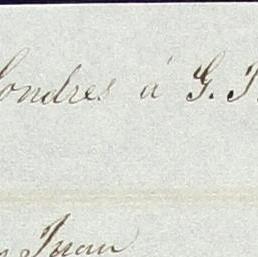 Londres à G.
Juan